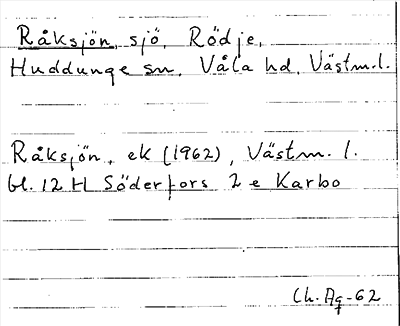 Råksjön, sjö, Rödje,
Huddunge sn, Våla hd, Västm.l.
Råksjön, ek (1962), Västm. l.
bl. 12 H Söderfors 2 e Karbo
Ch. Ag -62